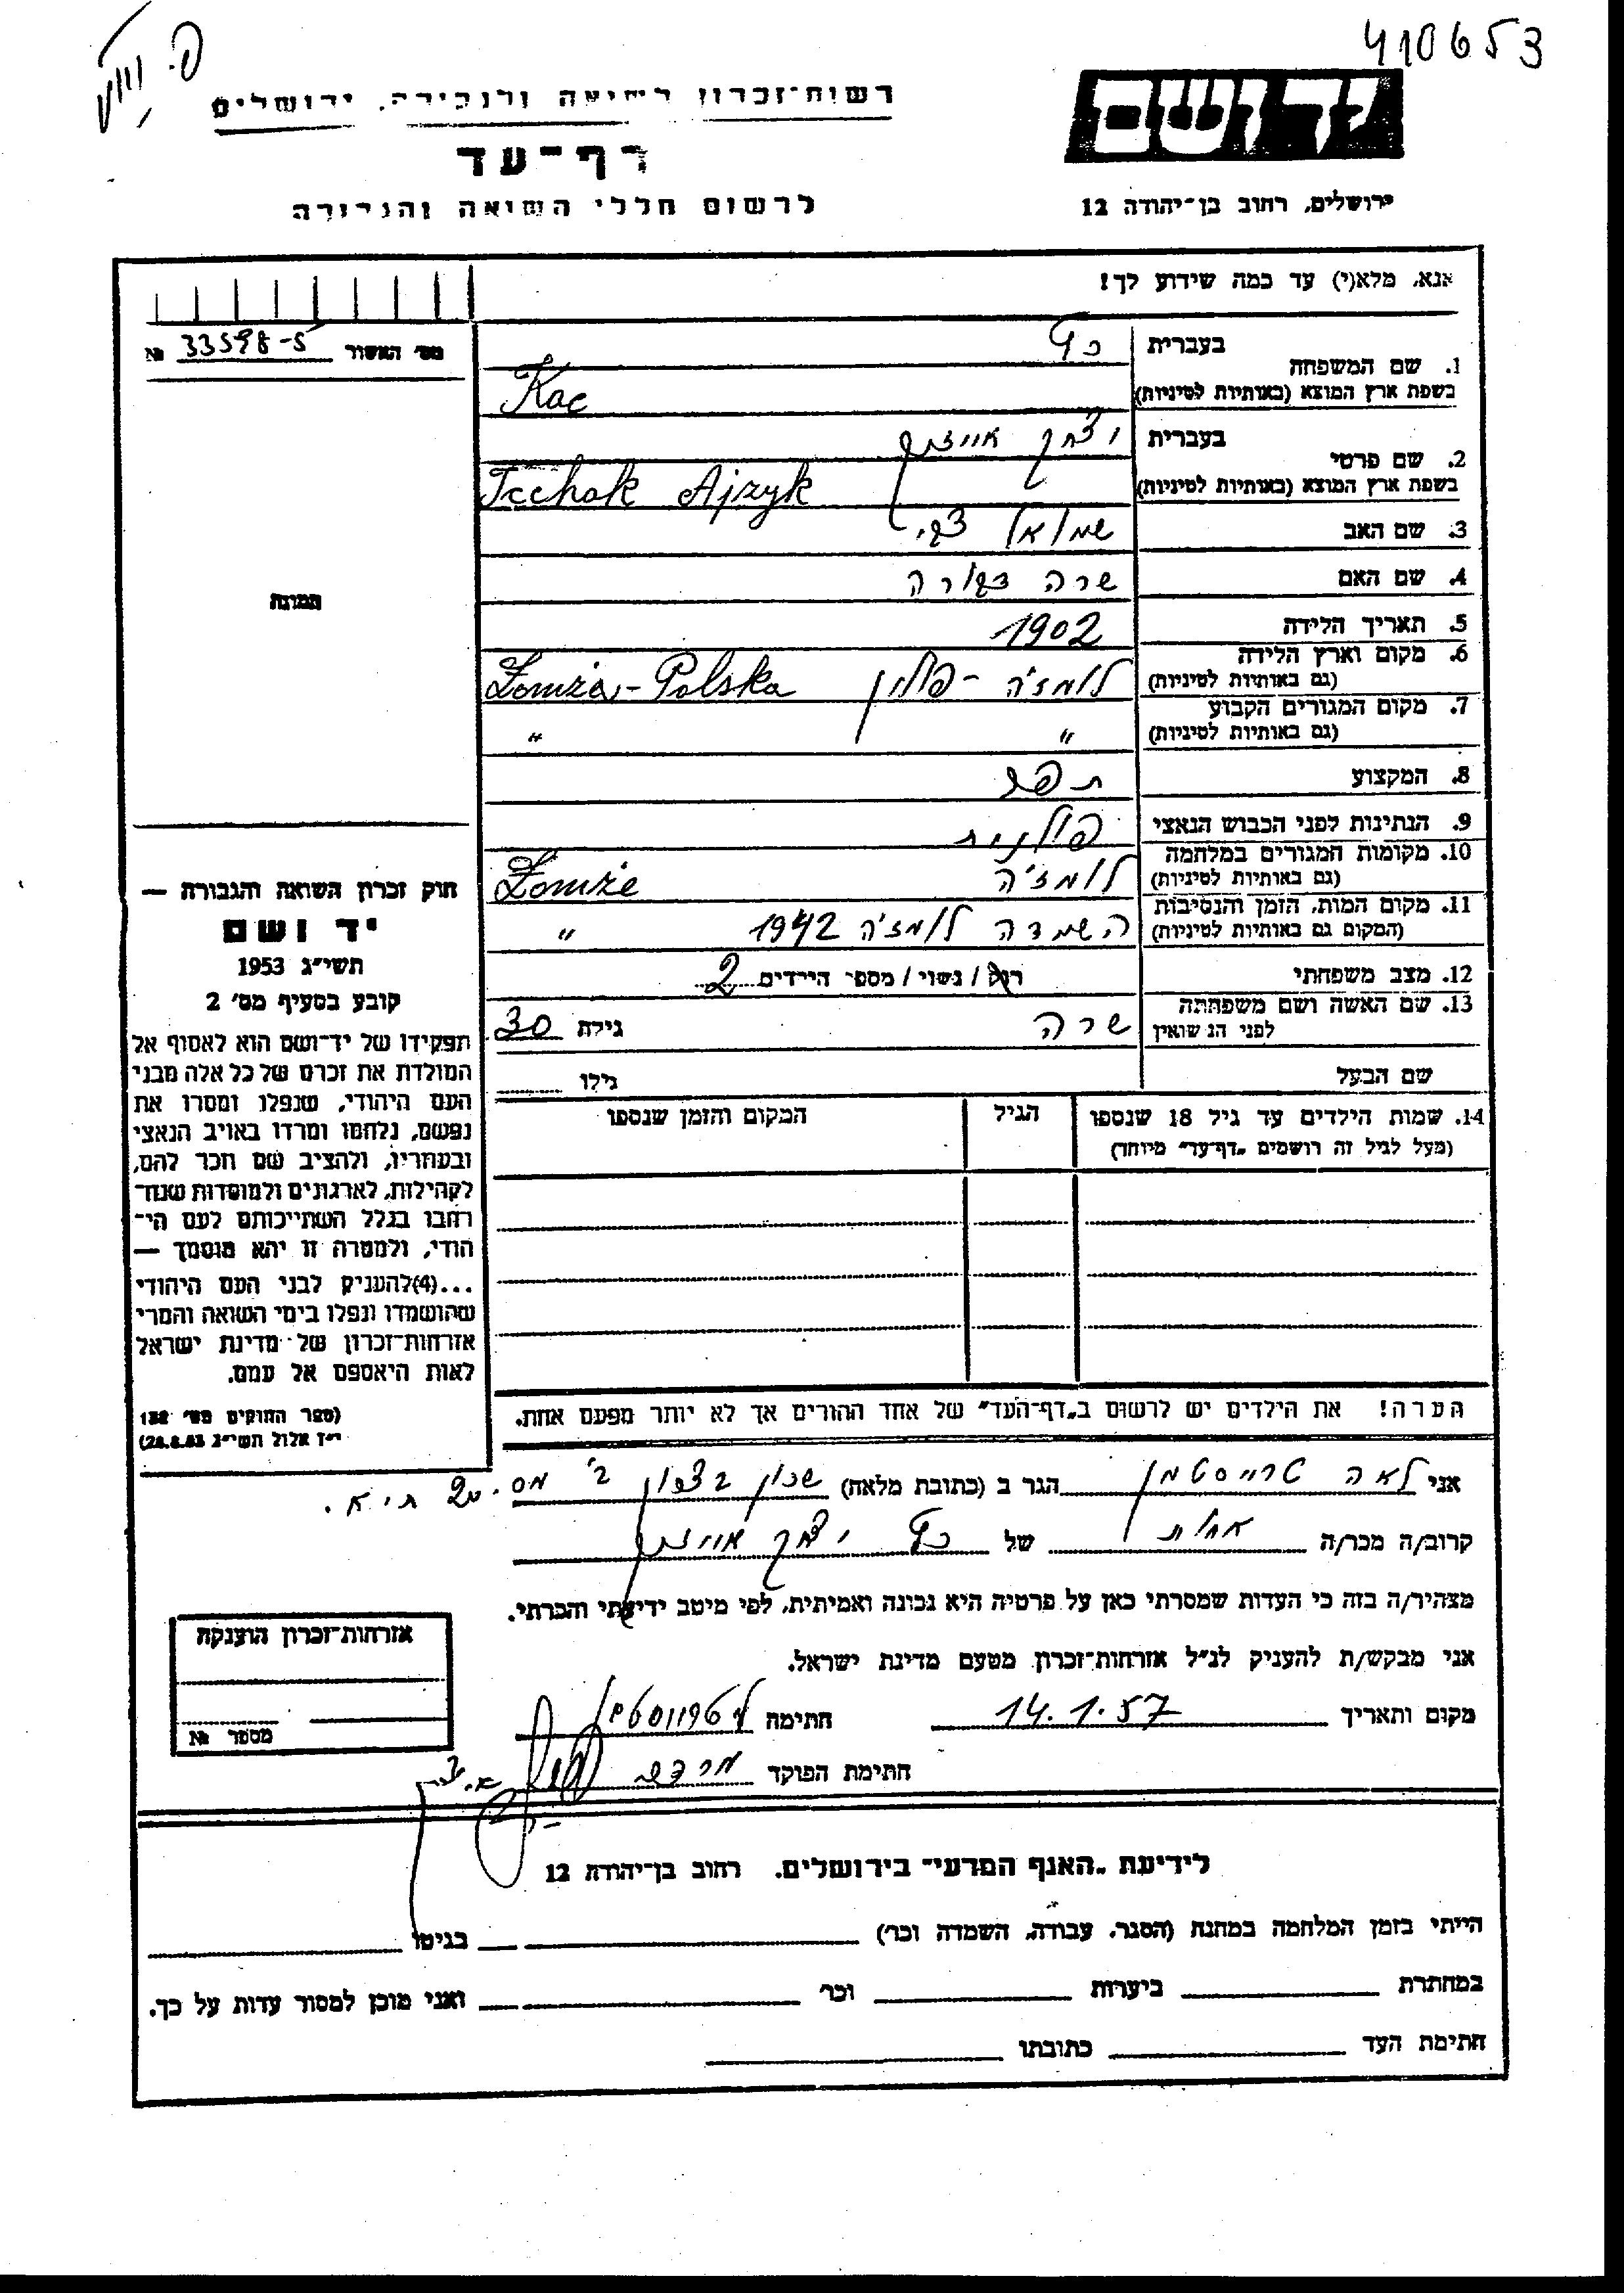 410653
יד ושם
ירושלים, רחוב בן־יהודה 12
רשות־זכרון השואה והגבורה, ירושלים
דף־עד
לרשום חללי השואה והגבורה
אנא, מלא(י) עד כמה שידוע לך!
מס׳ האשור 33598-5 №
תמונה
1. שם המשפחה
בעברית כץ
בשפת ארץ המוצא (באותיות לטיניות) Kac
2. שם פרטי
בעברית יצחק אייזיק
בשפת ארץ המוצא (באותיות לטיניות) Icchak Ajzyk
3. שם האב שמואל צבי
4. שם האם שרה דבורה
5. תאריך הלידה 1902
6. מקום וארץ הלידה
(גם באותיות לטיניות) לומז׳ה - פולין Łomża - Polska
7. מקום המגורים הקבוע
(גם באותיות לטיניות) " "
8. המקצוע תפר
9. הנתינות לפני הכבוש הנאצי פולנית
10. מקומות המגורים במלחמה
(גם באותיות לטיניות) לומז׳ה Łomże
11. מקום המות, הזמן והנסיבות
(המקום גם באותיות לטיניות) השמדה לומז׳ה 1942 "
12. מצב משפחתי רוק / נשוי / מספר הילדים 2
13. שם האשה ושם משפחתה
לפני הנשואין שרה גילה 30
שם הבעל גילו
14. שמות הילדים עד גיל 18 שנספו הגיל המקום והזמן שנספו
(מעל לגיל זה רושמים „דף־עד" מיוחד)
הערה! את הילדים יש לרשום ב„דף־העד" של אחד ההורים אך לא יותר מפעם אחת.
חוק זכרון השואה והגבורה —
יד ושם
תשי״ג 1953
קובע בסעיף מס׳ 2
תפקידו של יד־ושם הוא לאסוף אל
המולדת את זכרם של כל אלה מבני
העם היהודי, שנפלו ומסרו את
נפשם, נלחמו ומרדו באויב הנאצי
ובעוזריו, ולהציב שם וזכר להם,
לקהילות, לארגונים ולמוסדות שנח־
רבו בגלל השתייכותם לעם הי־
הודי, ולמטרה זו יהא מוסמך —
...(4) להעניק לבני העם היהודי
שהושמדו ונפלו בימי השואה והמרי
אזרחות־זכרון של מדינת ישראל
לאות היאספם אל עמם.
(ספר החוקים מס׳ 132
י״ז אלול תשי״ג 28.8.53)
אני לאה טרייסטמן הגר ב (כתובת מלאה) שכון בצפון ב׳ מס. 20 ת״א.
קרוב/ה מכר/ה אחות של כץ יצחק אייזיק
מצהיר/ה בזה כי העדות שמסרתי כאן על פרטיה היא נכונה ואמיתית, לפי מיטב ידיעתי והכרתי.
אני מבקש/ת להעניק לנ״ל אזרחות־זכרון מטעם מדינת ישראל.
מקום ותאריך 14.1.57 חתימה
חתימת הפוקד
אזרחות־זכרון הוענקה
מספר №
לידיעת „האנף המדעי" בירושלים. רחוב בן־יהודה 12
הייתי בזמן המלחמה במחנה (הסגר, עבודה, השמדה וכר׳) בגיטו
במחתרת ביערות וכר׳ ואני מוכן למסור עדות על כך.
חתימת העד כתובתו